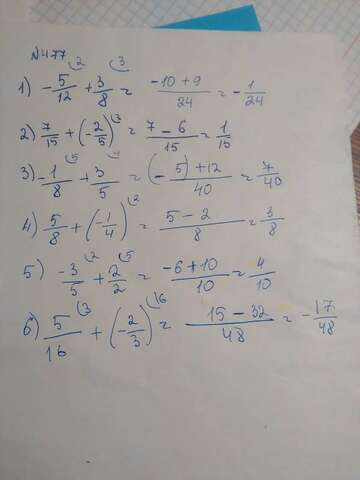 №477
1) - 5/12 + 3/8 = -10+9/24 = - 1/24
2) 7/15 + (- 2/5) = 7-6/15 = 1/15
3) - 1/8 + 3/5 = (- 5)+12/40 = 7/40
4) 5/8 + (- 1/4) = 5-2/8 = 3/8
5) - 3/5 + 2/2 = -6+10/10 = 4/10
6) 5/16 + (- 2/3) = 15-32/48 = - 17/48